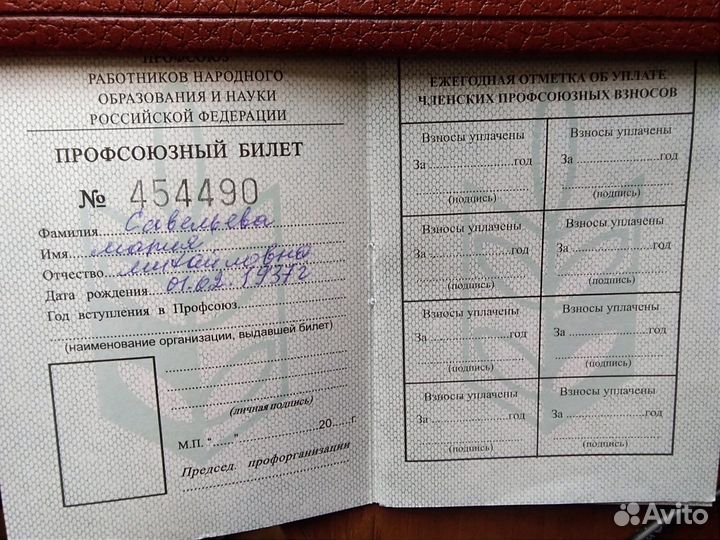 ПРОФСОЮЗ
РАБОТНИКОВ НАРОДНОГО
ОБРАЗОВАНИЯ И НАУКИ
РОССИЙСКОЙ ФЕДЕРАЦИИ
ПРОФСОЮЗНЫЙ БИЛЕТ
№ 454490
Фамилия Савельева
Имя Мария
Отчество Михайловна
Дата рождения 01.02.1937г
Год вступления в Профсоюз
(наименование организации, выдавшей билет)
(личная подпись)
М.П. "......" 20.....г.
Председ. профорганизации
ЕЖЕГОДНАЯ ОТМЕТКА ОБ УПЛАТЕ
ЧЛЕНСКИХ ПРОФСОЮЗНЫХ ВЗНОСОВ
Взносы уплачены
За ..................... год
(подпись)
Взносы уплачены
За ..................... год
(подпись)
Взносы уплачены
За ..................... год
(подпись)
Взносы уплачены
За ..................... год
(подпись)
Взносы уплачены
За ..................... год
(подпись)
Взносы уплачены
За ..................... год
(подпись)
Взносы уплачены
За ..................... год
(подпись)
Взносы уплачены
За ..................... год
(подпись)
Avito